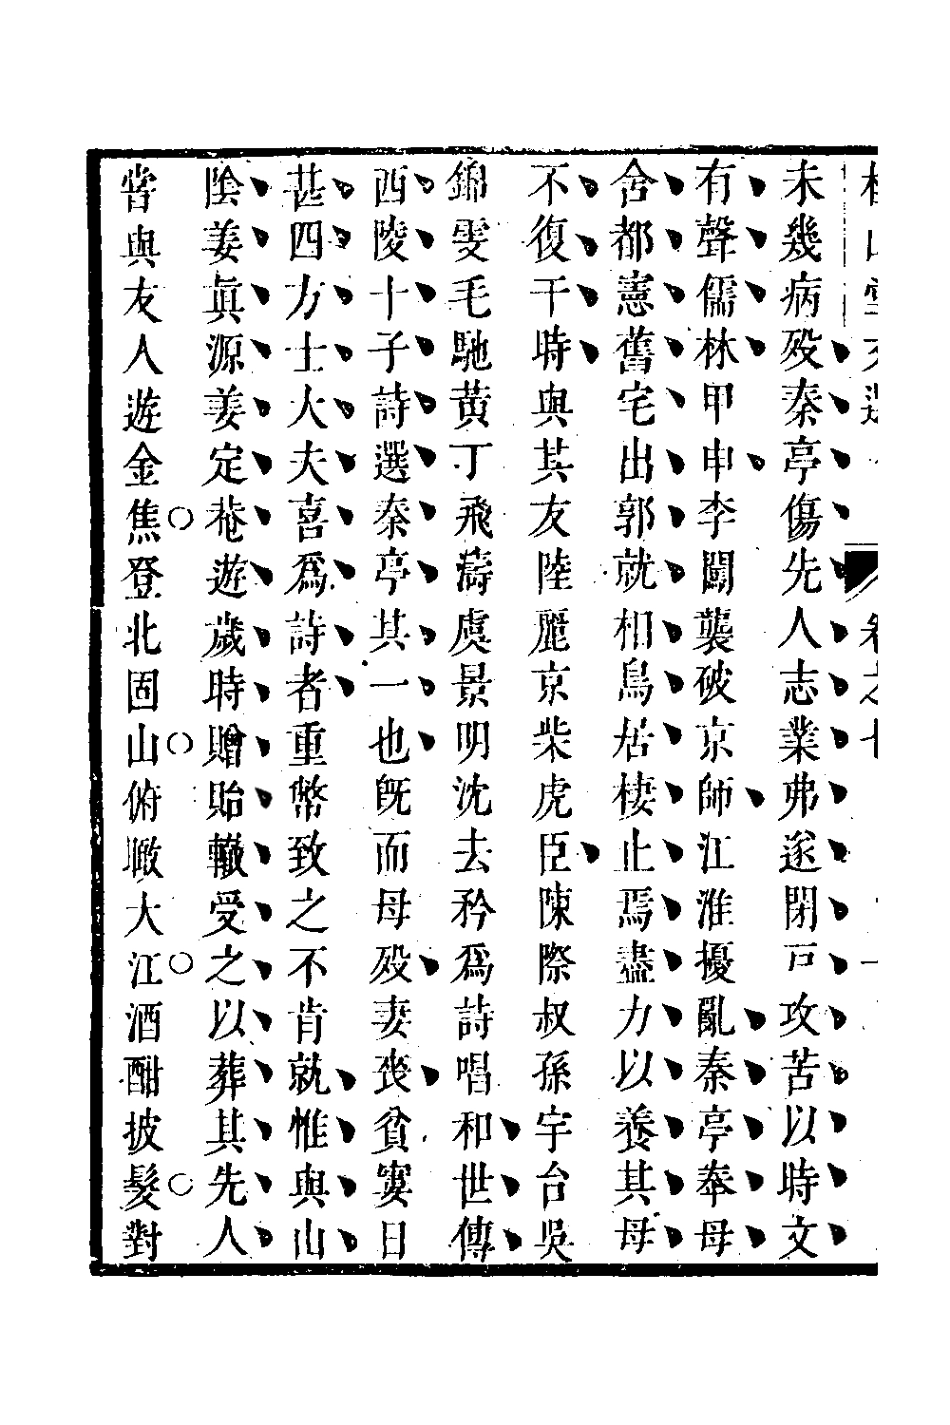 卷之七
未幾病殁秦亭傷先人志業弗遂閉戸攻苦以時文
有聲儒林甲申李闖襲破京師江淮擾亂秦亭奉母
舍都憲舊宅出郭就相鳥居棲止焉盡力以養其母
不復干時與其友陸麗京柴虎臣陳際叔孫宇台吳
錦雯毛馳黃丁飛濤虞景明沈去矜爲詩唱和世傳
西陵十子詩選秦亭其一也旣而母殁妻喪貧窶日
甚四方士大夫喜爲詩者重幣致之不肯就惟與山
陰姜眞源姜定菴遊歲時贈貽輙受之以葬其先人
嘗與友人遊金焦登北固山俯瞰大江酒酣披髮對